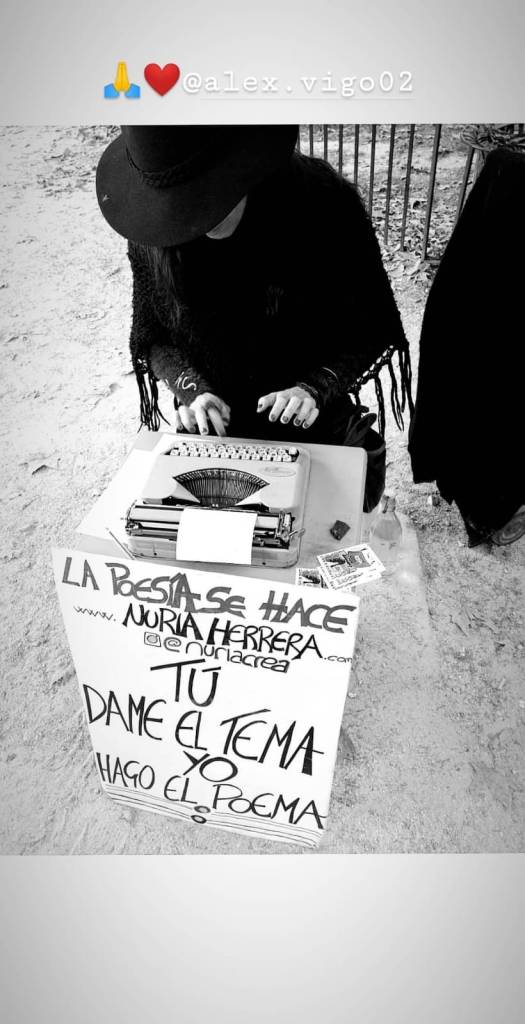 🙏❤️@alex.vigo02
LA POESÍA SE HACE
www. NURIA HERRERA.com
@nuriacrea
TÚ
DAME EL TEMA
YO
HAGO EL POEMA